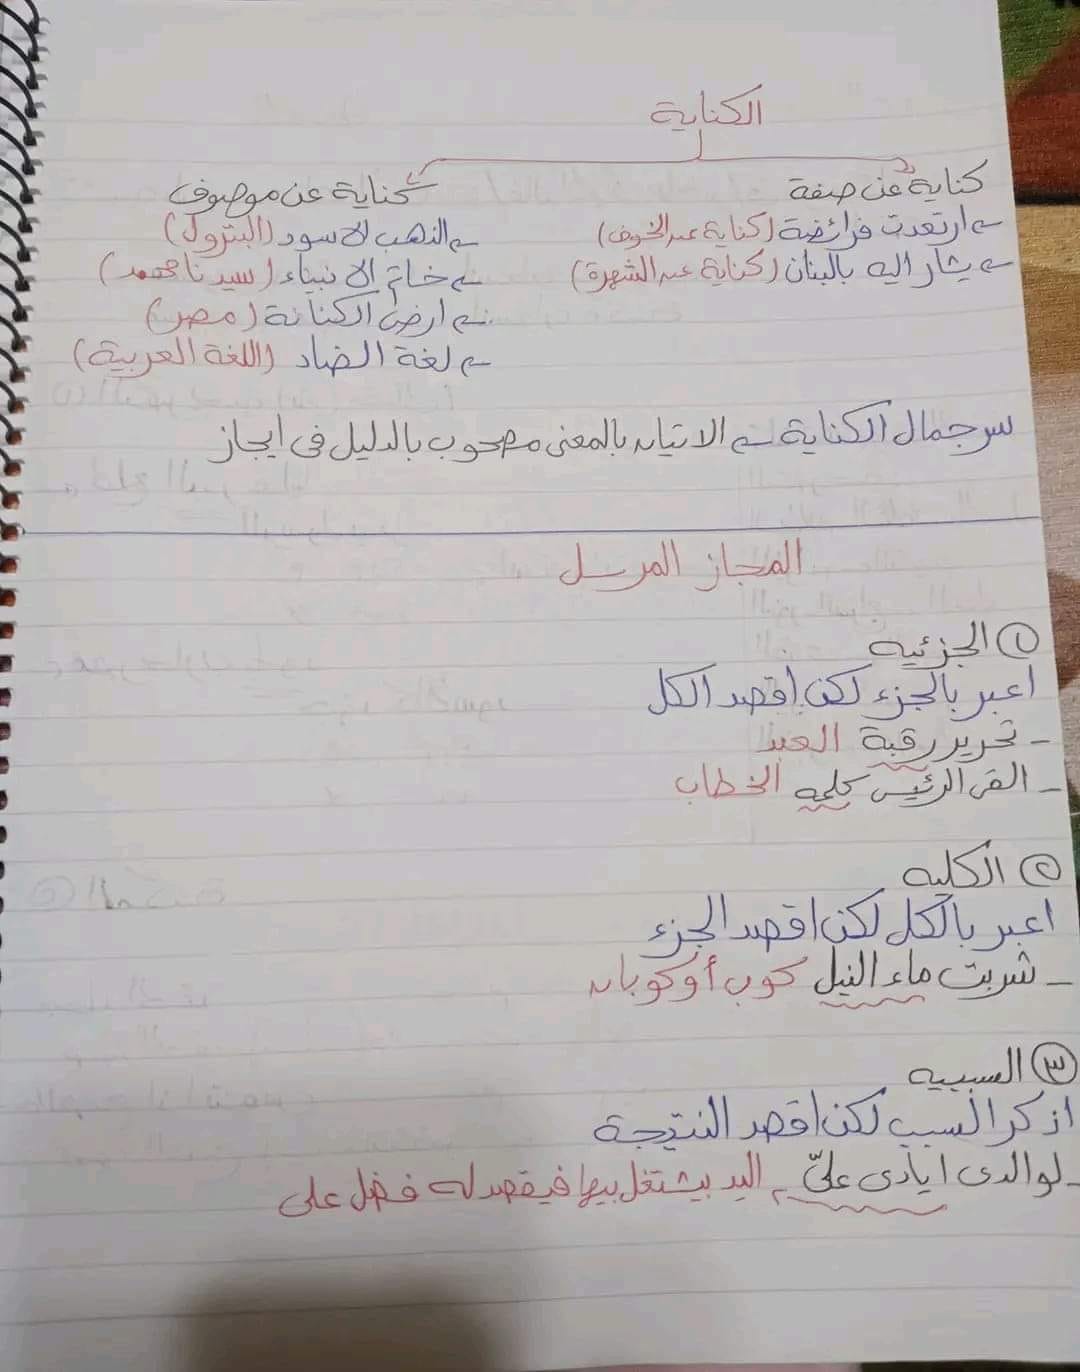 الكناية
كناية عن صفة
ارتعدت فرائضة (كناية عن الخوف)
يشار اليه بالبنان (كناية عن الشهرة)
كناية عن موصوف
الذهب الاسود (البترول)
خاتم الانبياء (سيدنا محمد)
ارض الكنانة (مصر)
لغة الضاد (اللغة العربية)
سر جمال الكناية ← الاتيان بالمعنى مصحوب بالدليل فى ايجاز
المجاز المرسل
① الجزئيه
اعبر بالجزء لكن اقصد الكل
- تحرير رقبة العبد
- القى الرئيس كلمه الخطاب
② الكليه
اعبر بالكل لكن اقصد الجزء
- شربت ماء النيل كوب أو كوبان
③ السببيه
اذكر السبب لكن اقصد النتيجة
- لوالدى ايادى علىّ اليد بيشتغل بيها فيقصد له فضل على